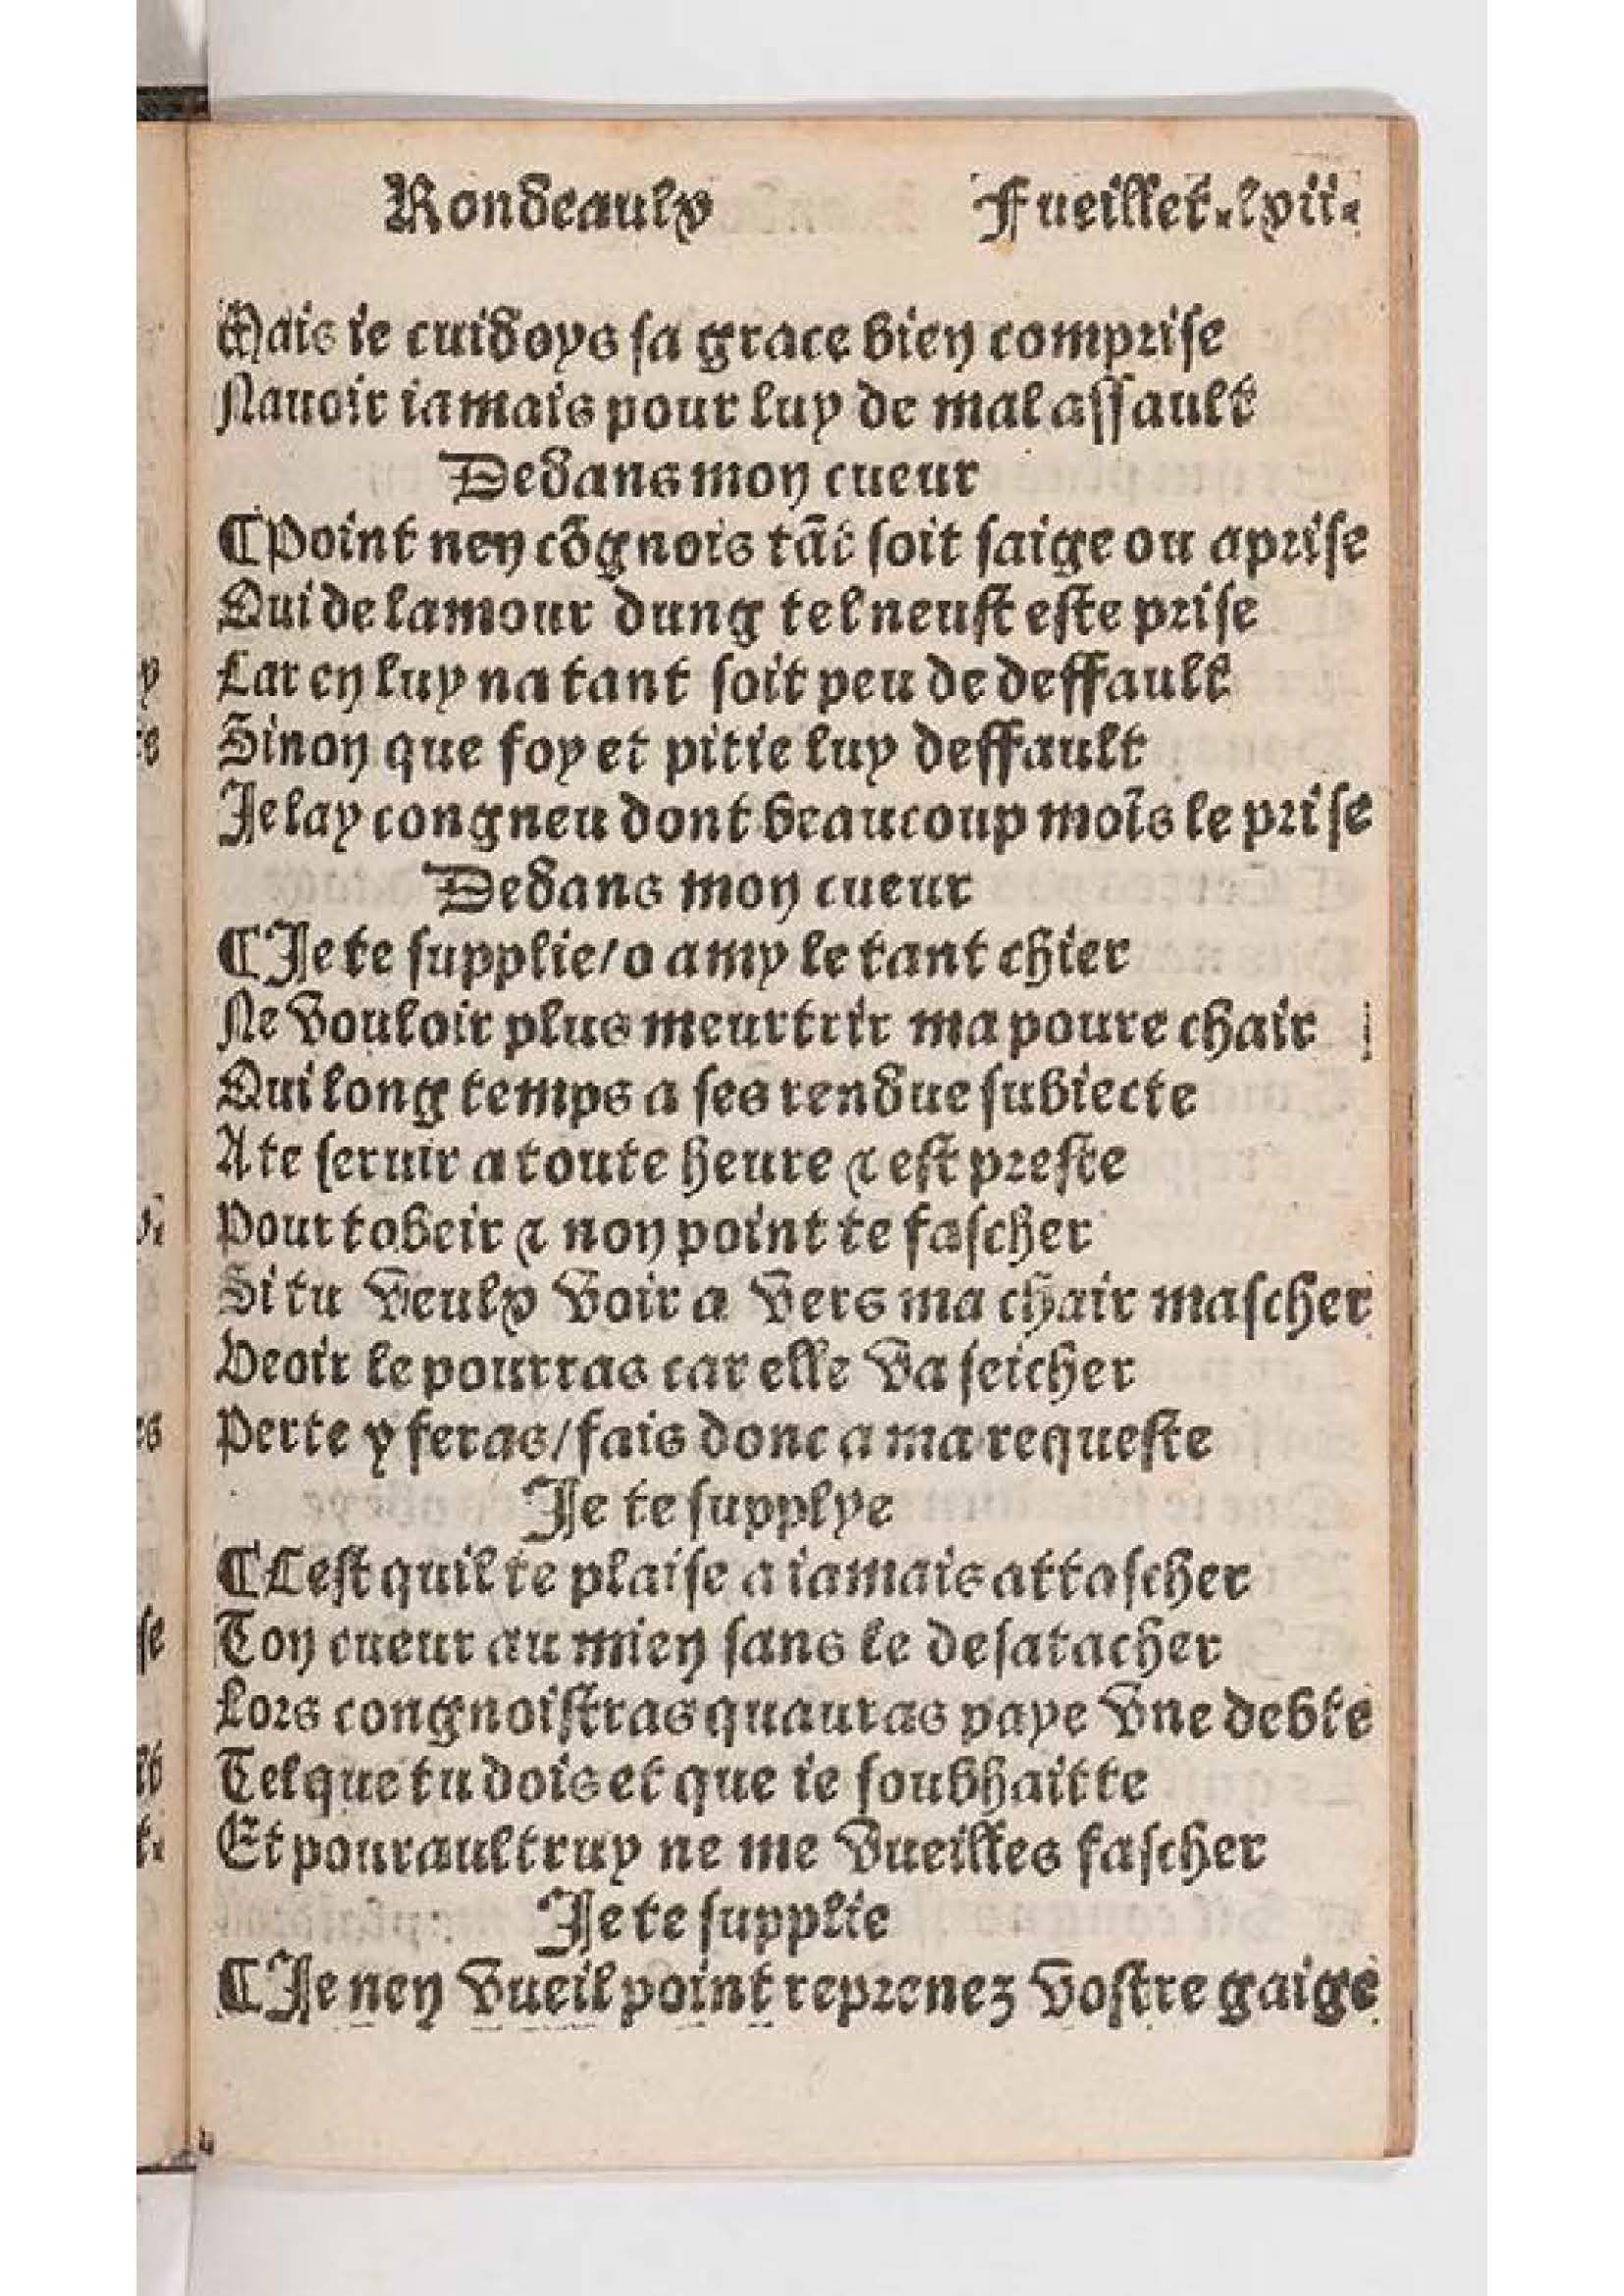 Rondeaulx Fueillet.lxii.
Mais ie cuidoys sa grace bien comprise
Nauoir iamais pour luy de mal assault
Dedans mon cueur
¶Point nen cõgnois tãt soit saige ou aprise
Qui de lamour dung tel neust este prise
Car en luy na tant soit peu de deffault
Sinon que foy et pitie luy deffault
Je lay congneu dont beaucoup moĩs le prise
Dedans mon cueur
¶Je te supplie/o amy le tant chier
Ne vouloir plus meurtrir ma poure chair
Qui long temps a ses rendue subiecte
A te seruir a toute heure & est preste
Pour tobeir & non point te fascher
Si tu veulx voir a vers ma chair mascher
Veoir le pourras car elle va seicher
Perte y feras/fais donc a ma requeste
Je te supplye
¶Cest quil te plaise a iamais attascher
Ton cueur au mien sans le desatacher
Lors congnoistras quauras paye vne debte
Tel que tu dois et que ie soubhaitte
Et pour aultruy ne me vueilles fascher
Je te supplie
¶Je nen vueil point reprenez vostre gaige